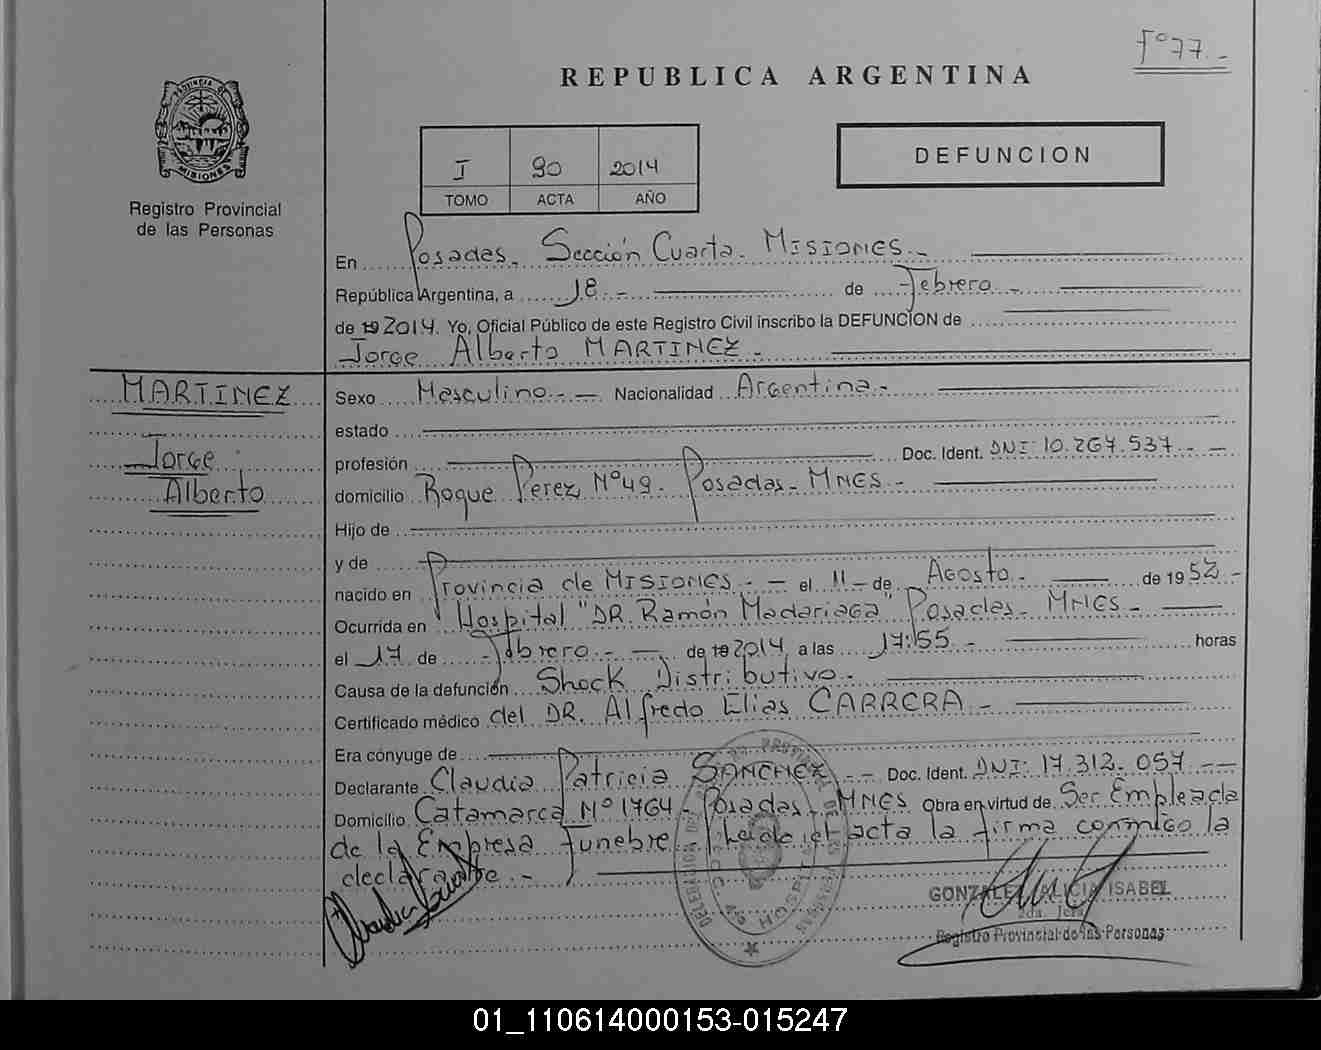 Fº 77.-
REPUBLICA ARGENTINA
PROVINCIA DE MISIONES
Registro Provincial
de las Personas
I 90 2014
TOMO ACTA AÑO
DEFUNCION
En Posadas. Sección Cuarta. MISIONES.-
República Argentina, a 18.- de Febrero.-
de 19 2014. Yo, Oficial Público de este Registro Civil inscribo la DEFUNCION de
Jorge Alberto MARTINEZ.-
MARTINEZ
Jorge
Alberto
Sexo Masculino.-- Nacionalidad Argentina.-
estado
profesión Doc. Ident. DNI: 10.267.537.--
domicilio Roque Perez Nº 49. Posadas. MNES.-
Hijo de
y de
nacido en Provincia de MISIONES.-- el 11 - de Agosto.- de 1952.-
Ocurrida en Hospital "DR. Ramón Madariaga" Posadas. MNES.-
el 17 de Febrero.-- de 19 2014, a las 17:55.- horas
Causa de la defunción Shock Distributivo.-
Certificado médico del DR. Alfredo Elias CARRERA.-
Era cónyuge de
Declarante Claudia Patricia SANCHEZ.-- Doc. Ident. DNI: 17.312.057.--
Domicilio Catamarca Nº 1764. Posadas. MNES Obra en virtud de Ser Empleada
de la Empresa Funebre. Leida el acta la firma conmigo la
declarante.-
GONZALEZ ALICIA ISABEL
2da. Jefa
Registro Provincial de las Personas
01_110614000153-015247